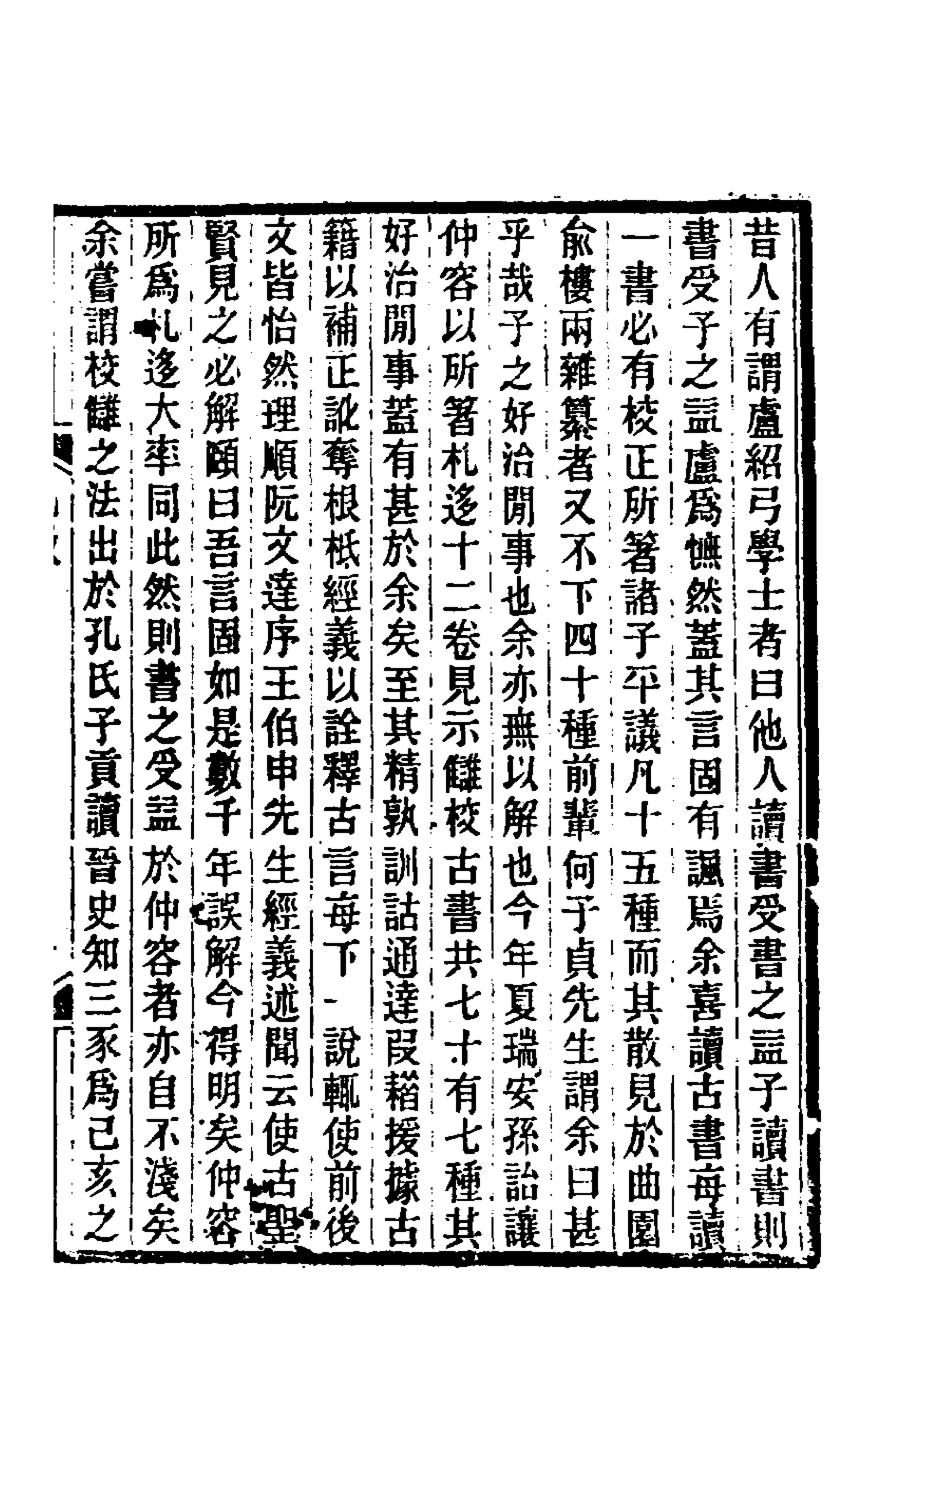 昔人有謂盧紹弓學士者曰他人讀書受書之益子讀書則
書受子之益盧爲憮然蓋其言固有諷焉余喜讀古書每讀
一書必有校正所箸諸子平議凡十五種而其散見於曲園
俞樓兩雜纂者又不下四十種前輩何子貞先生謂余曰甚
乎哉子之好治閒事也余亦無以解也今年夏瑞安孫詒讓
仲容以所箸札迻十二卷見示讎校古書共七十有七種其
好治閒事蓋有甚於余矣至其精孰訓詁通達叚藉援據古
籍以補正訛奪根柢經義以詮釋古言每下一說輒使前後
文皆怡然理順阮文達序王伯申先生經義述聞云使古聖
賢見之必解頤曰吾言固如是數千年誤解今得明矣仲容
所爲札迻大率同此然則書之受益於仲容者亦自不淺矣
余嘗謂校讎之法出於孔氏子貢讀晉史知三豕爲己亥之